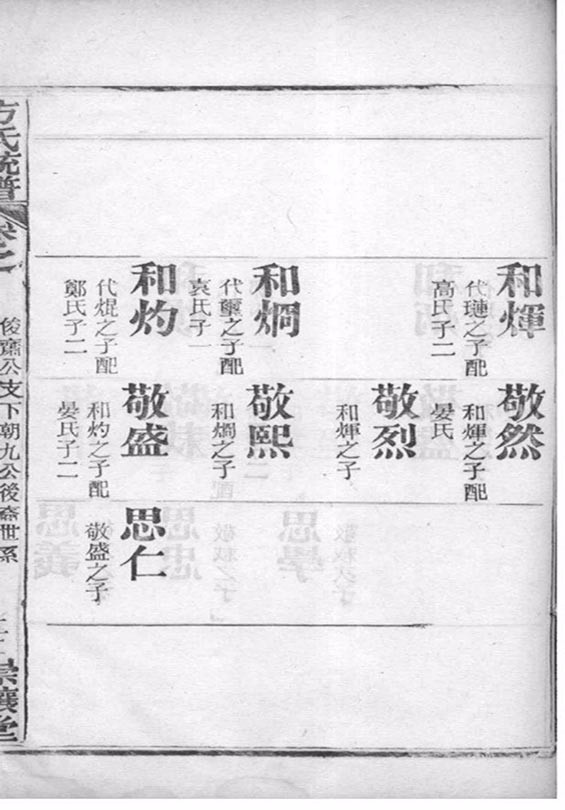 和煇
代璉之子配
高氏子二
和烱
代璽之子配
袁氏子一
和灼
代焜之子配
鄭氏子二
敬然
和煇之子配
晏氏
敬烈
和煇之子
敬熙
和烱之子
敬盛
和灼之子配
晏氏子二
思仁
敬盛之子
方氏統譜
卷之
俊齋公支下朝九公後裔世系
堂